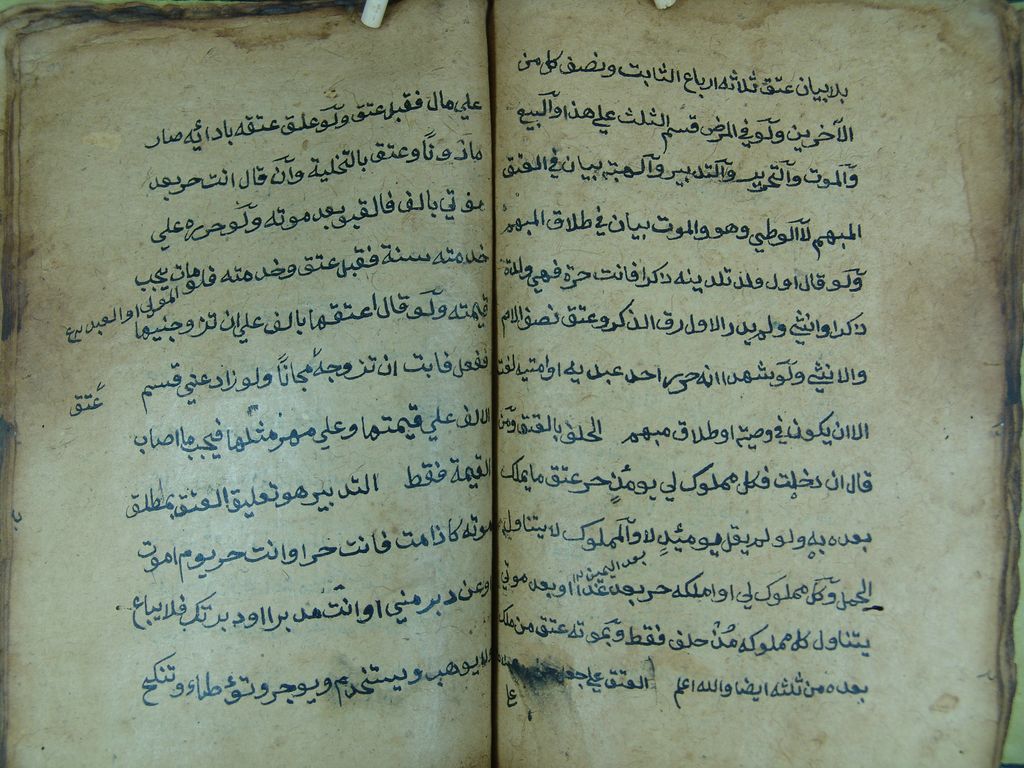 بلا بيان عتق ثلاثه ارباع الثابت ونصف كل من
الآخرين ولو في المرض قسم الثلث علي هذا والبيع
والموت والتحرير والتدبير والهبة بيان في العتق
المبهم لا الوطي وهو والموت بيان في طلاق المبهم
ولو قال اول ولد تلدينه ذكرا فانت حرة فهي ولدت
ذكرا وانثي ولم يدر الاول رق الذكر وعتق نصف الام
والانثي ولو شهدا انه حرر احد عبديه او امتيه لغت
الا ان يكون في وصية او طلاق مبهم الحلف بالعتق ومن
قال ان دخلت فكل مملوك لي يومئذ حر عتق ما يملك
بعده به ولو لم يقل يومئذ لا والمملوك لا يتناول
الحمل وكل مملوك لي او املكه حر بعد غد او بعد موتي
بعد اليمين
يتناول كل مملوكه مذ حلف فقط وبموته عتق من ملك
بعده من ثلثه ايضا والله اعلم العتق علي جعل
علي مال فقبل عتق ولو علق عتقه بادائه صار
ماذونا وعتق بالتخلية وان قال انت حر بعد
موتي بالف فالقبول بعد موته ولو حرره علي
خدمته سنة فقبل عتق وخدمته فلو مات يجب
المولي او العبد
قيمته ولو قال اعتقها بالف علي ان تزوجنيها
ففعل فابت ان تزوجه مجانا ولو زاد عني قسم
عتق
الالف علي قيمتها وعلي مهر مثلها فيجب ما اصاب
القيمة فقط التدبير هو تعليق العتق بمطلق
موته كاذا مت فانت حر او انت حر يوم اموت
او عن دبر مني او انت مدبر او دبرتك فلا يباع
ولا يوهب ويستخدم ويوجر وتوطاء وتنكح